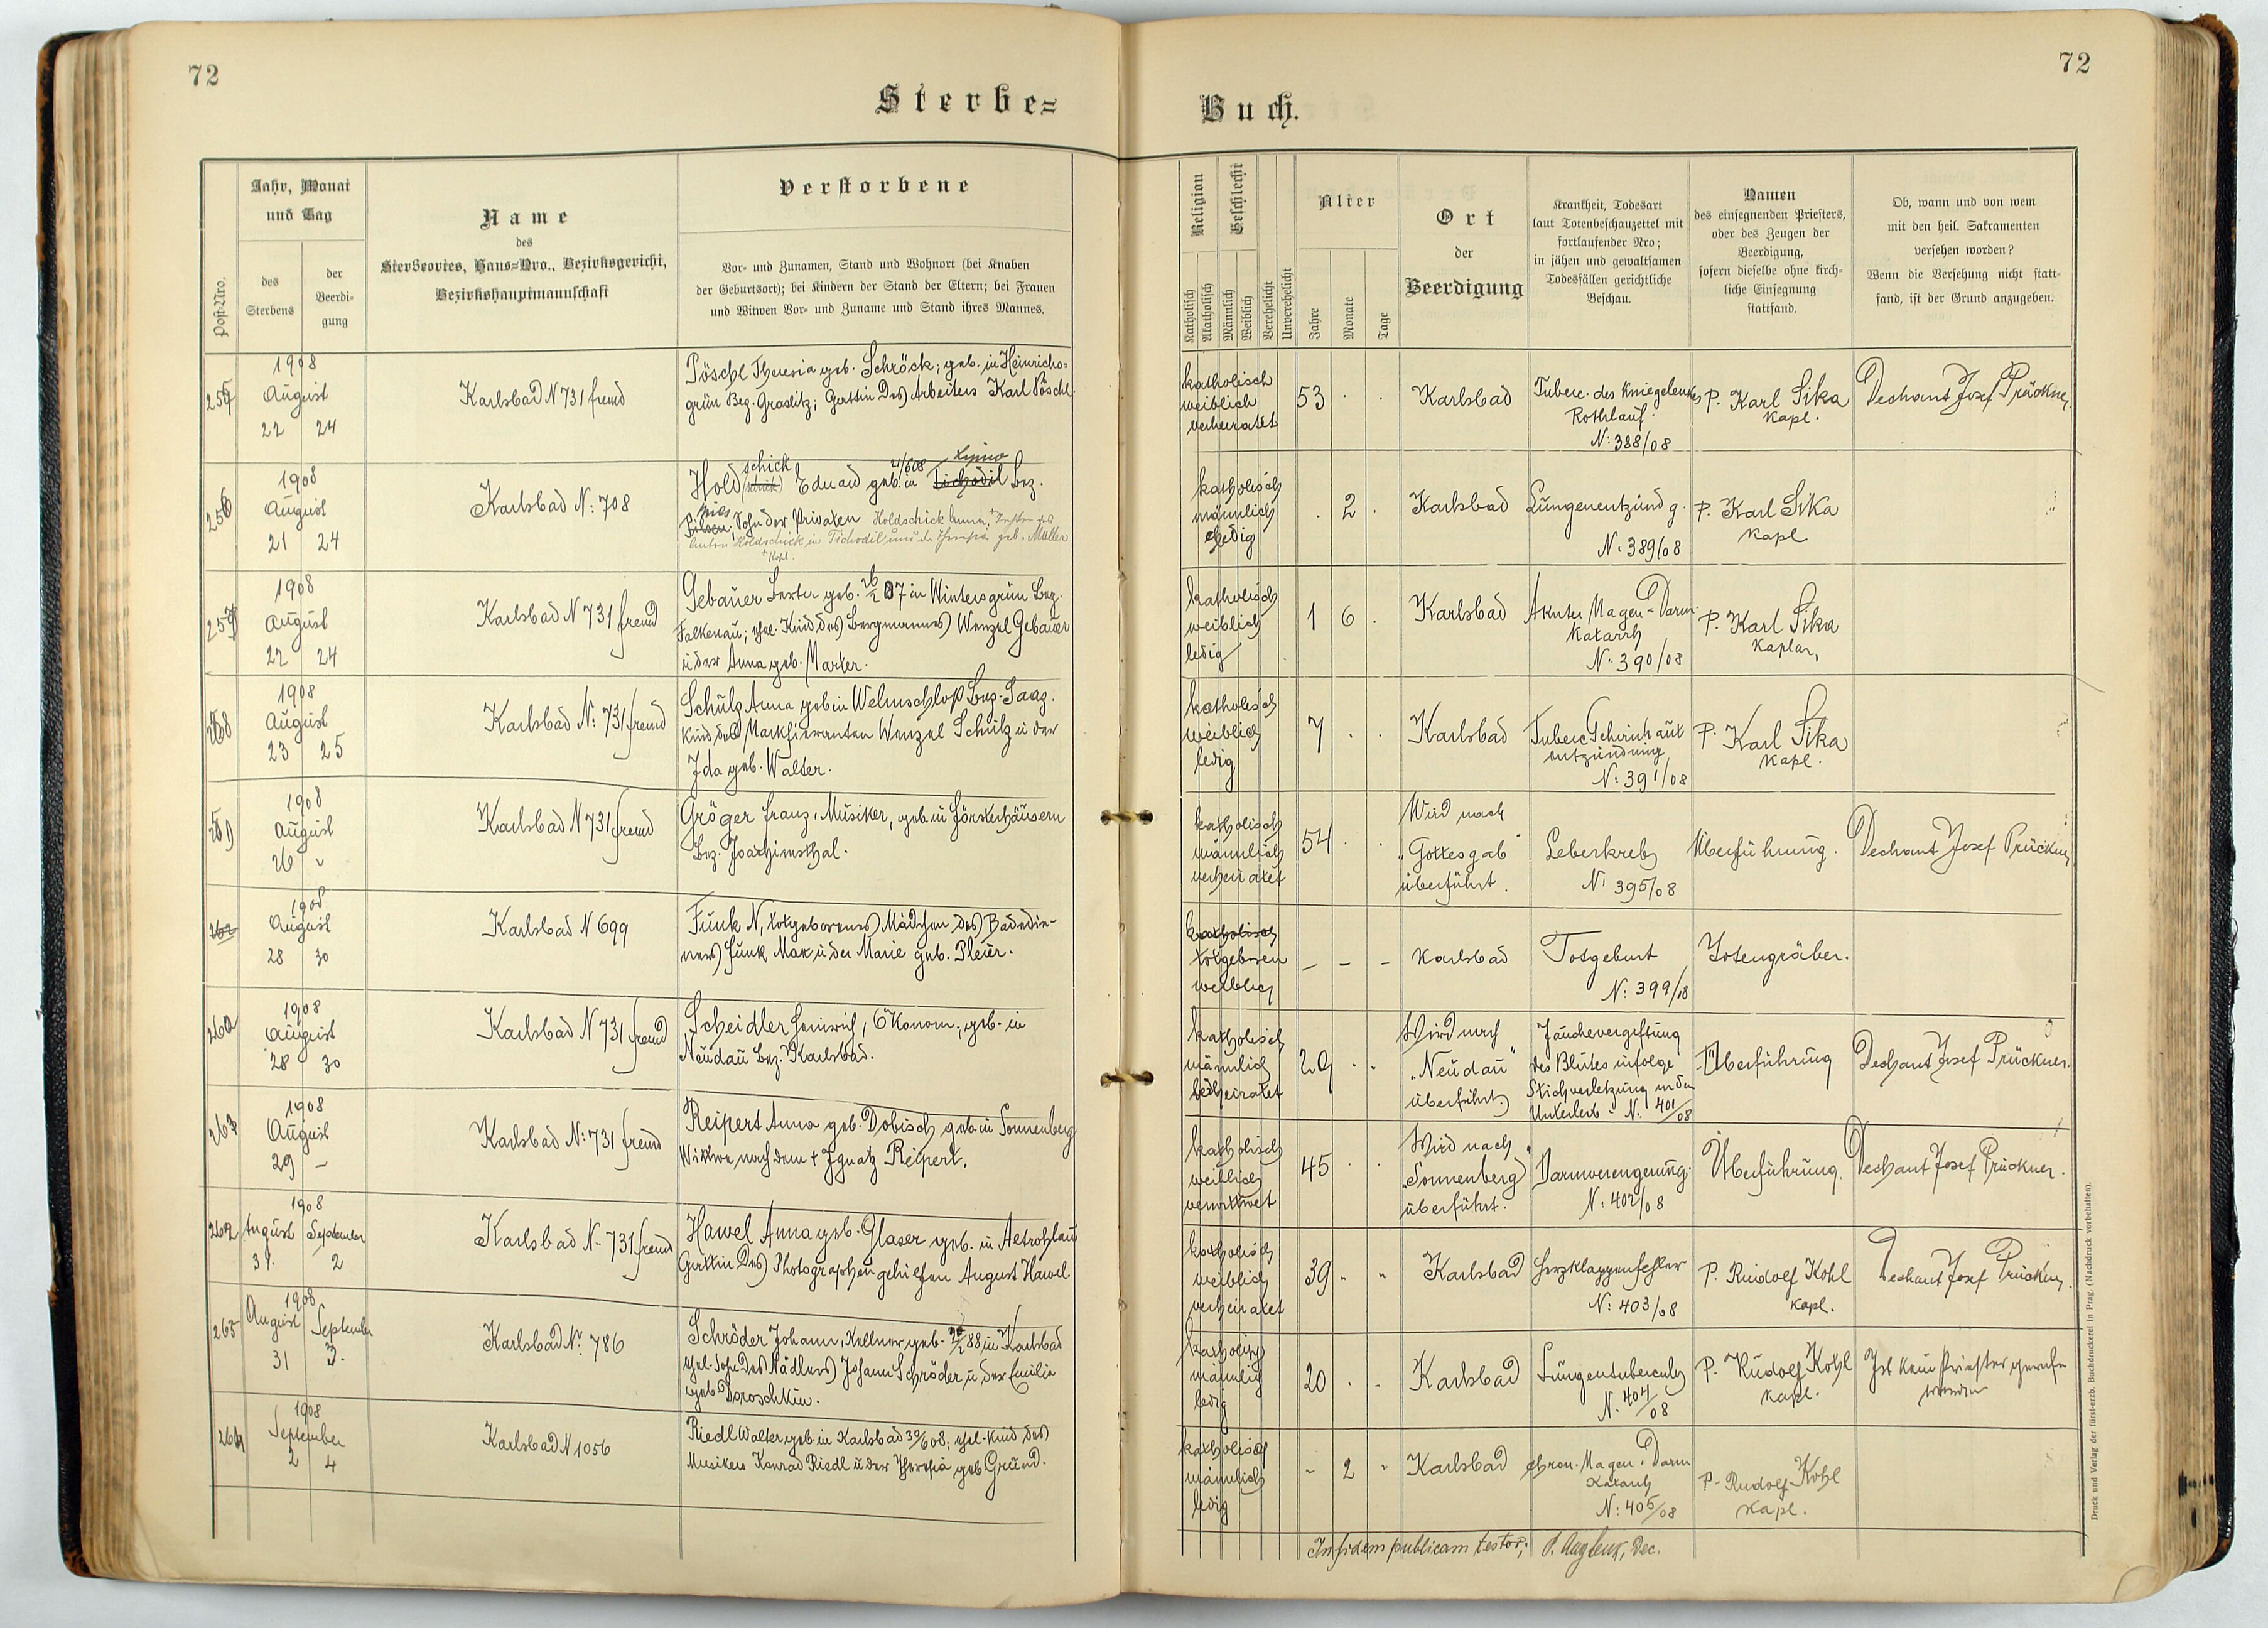 72
72
Sterbe=
Buch.
Post-Nro.
Jahr, Monat
und Tag
des
Sterbens
der
Beerdi-
gung
Name
des
Sterbeortes, Haus=Nro., Bezirksgericht,
Bezirkshauptmannschaft
Verstorbene
Vor- und Zunamen, Stand und Wohnort (bei Knaben
der Geburtsort); bei Kindern der Stand der Eltern; bei Frauen
und Witwen Vor- und Zuname und Stand ihres Mannes.
Religion
Katholisch
Akatholisch
Geschlecht
Männlich
Weiblich
Verehelicht
Unverehelicht
Alter
Jahre
Monate
Tage
Ort
der
Beerdigung
Krankheit, Todesart
laut Totenbeschauzettel mit
fortlaufender Nro;
in jähen und gewaltsamen
Todesfällen gerichtliche
Beschau.
Namen
des einsegnenden Priesters,
oder des Zeugen der
Beerdigung,
sofern dieselbe ohne kirch-
liche Einsegnung
stattfand.
Ob, wann und von wem
mit den heil. Sakramenten
versehen worden?
Wenn die Versehung nicht statt-
fand, ist der Grund anzugeben.
1908
August
22 24
Karlsbad N 731 fremd
Pöschl Theresia geb. Schröck; geb. in Heinrichs=
grün Bez. Graslitz; Gattin des Arbeiters Karl Pöschl.
katholisch
weiblich
verheiratet
53
Karlsbad
Tuberc. des Kniegelenkes
Rothlauf
N: 388/08
P. Karl Sika
Kapl.
Dechant Josef Prückner.
256
1908
August
21 24
Karlsbad N: 708
schick
Hold Eduard geb. 21/6 08 in Tschodil Bez.
Pilsen; Sohn der Privaten Holdschick Anna, Tochter des
Anton Holdschick in Tschodil und der Theresia geb. Müller
katholisch
männlich
ledig
2
Karlsbad
Lungenentzündg.
N. 389/08
P. Karl Sika
Kapl
257
1908
August
22 24
Karlsbad N 731 fremd
Gebauer Berta geb. 26/2 07 in Wintersgrün Bez.
Falkenau; ehel. Kind des Bergmannes Wenzel Gebauer
u der Anna geb. Marter.
katholisch
weiblich
ledig
1 6
Karlsbad
Akuter Magen-Darm
Katarrh
N. 390/08
P. Karl Sika
Kaplan,
258
1908
August
23 25
Karlsbad N: 731 fremd
Schulz Anna geb in Welmschloß Bez. Saaz.
Kind des Markfieranten Wenzel Schulz u der
Ida geb. Walter.
katholisch
weiblich
ledig
7
Karlsbad
Tuberc Gehirnhaut
entzündung
N: 391/08
P. Karl Sika
Kapl.
1908
August
26
Karlsbad N 731 fremd
Gröger Franz, Musiker, geb in Försterhäusern
Bez. Joachimsthal.
katholisch
männlich
verheiratet
54
Wird nach
"Gottesgab"
überführt.
Leberkrebs
N: 395/08
Überführung.
Dechant Josef Prückner
1908
August
28 30
Karlsbad N 699
Funk N, totgeborenes Mädchen des Badedie-
ners Funk Max u der Marie geb. Pleier.
katholisch
totgeboren
weiblich
- - -
Karlsbad
Totgeburt
N: 399/08
Totengräber.
260
1908
August
28 30
Karlsbad N 731 fremd
Scheidler Heinrich, Ökonom, geb. in
Neudau Bez. Karlsbad.
katholisch
männlich
verheiratet
29
Wird nach
"Neudau"
überführt.
Jauchevergiftung
des Blutes infolge
Stichverletzung in den
Unterleib - N. 401/08
Überführung
Dechant Josef Prückner.
1908
August
29 -
Karlsbad N: 731 fremd
Reipert Anna geb. Dobisch geb. in Sonnenberg
Witwe nach dem + Ignatz Reipert.
katholisch
weiblich
verwittwet
45
Wird nach
"Sonnenberg"
überführt.
Darmverengerung.
N. 402/08
Überführung.
Dechant Josef Prückner.
262
1908
August September
31. 2
Karlsbad N. 731 fremd
Hawel Anna geb. Glaser geb. in Altrohlau
Gattin des Photographengehilfen August Hawel.
katholisch
weiblich
verheiratet
39
Karlsbad
Herzklappenfehler
N: 403/08
P. Rudolf Kohl
Kapl.
Dechant Josef Prückner.
263
1908
August September
31 3.
Karlsbad Nr. 786
Schröder Johann, Kellner geb. /2 88 in Karlsbad
ehel. Sohn des Nädlers Johann Schröder u der Emilia
geb Doroschkin.
katholisch
männlich
ledig
20
Karlsbad
Lungentubercul.
N. 404/08
P. Rudolf Kohl
Kapl.
Ist kein Priester gerufen
worden
264
1908
September
2 4
Karlsbad N 1056
Riedl Walter geb. in Karlsbad 30/6 08; ehel. Kind des
Musikers Konrad Riedl u der Theresia geb Grund.
katholisch
männlich
ledig
- 2 -
Karlsbad
chron. Magen-Darm
Katarrh
N: 405/08
P. Rudolf Kohl
Kapl.
In fidem publicam testor;
Druck und Verlag der fürst-erzb. Buchdruckerei in Prag. (Nachdruck vorbehalten).